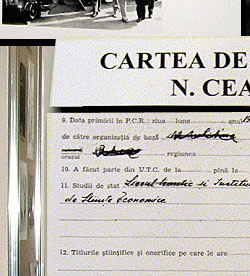 CARTEA DE
N. CEA
9. Data primirii în P.C.R.: ziua luna anul
de către organizația de bază
raional
orașul regiunea
10. A făcut parte din U.T.C. de la pînă la
11. Studii de stat Liceul teoretic si Institutul
de Stiinte Economice
12. Titlurile științifice și onorifice pe care le are